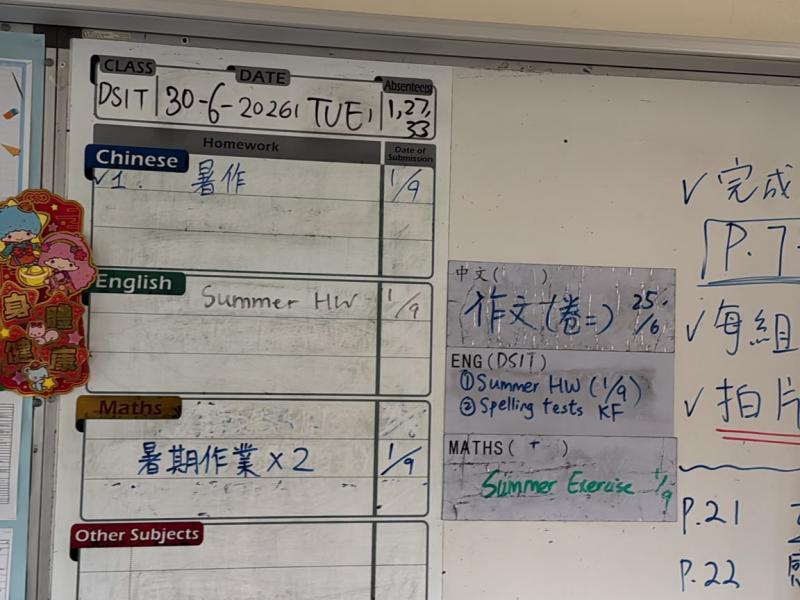 CLASS
DATE
Absentee(s)
DSIT
30-6-2026
TUE
1, 27,
33
Homework
Date of
Submission
Chinese
✓1. 暑作
1/9
English
Summer HW
1/9
Maths
暑期作業 x 2
1/9
Other Subjects
身體
健康
中文( )
作文(卷二)
25/6
ENG (DSIT)
①Summer HW (1/9)
② Spelling tests KF
MATHS ( + )
Summer Exercise 1/9
✓完成
P.7
✓每組
✓拍片
P.21
P.22